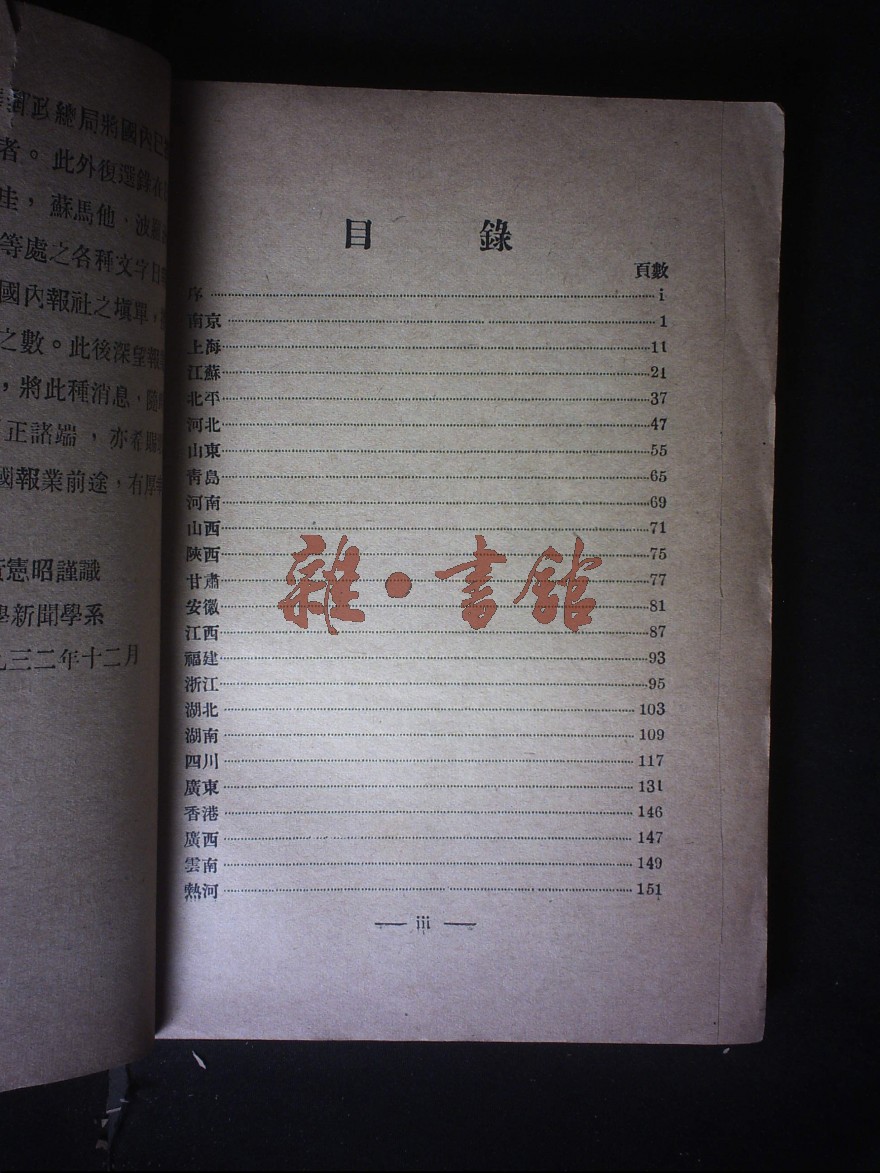 政總局將國內已
者。此外復選錄在
蘇馬他、波
等處之各種文字日
國內報社之填單，
之數。此後深望報
，將此種消息，隨
正諸端，亦希
國報業前途，有厚
憲昭謹識
學新聞學系
九三二年十二月
目 錄
頁數
序 i
南京 1
上海 11
江蘇 21
北平 37
河北 47
山東 55
靑島 65
河南 69
山西 71
陝西 75
甘肅 77
安徽 81
江西 87
福建 93
浙江 95
湖北 103
湖南 109
四川 117
廣東 131
香港 146
廣西 147
雲南 149
熱河 151
— iii —
雜·書館